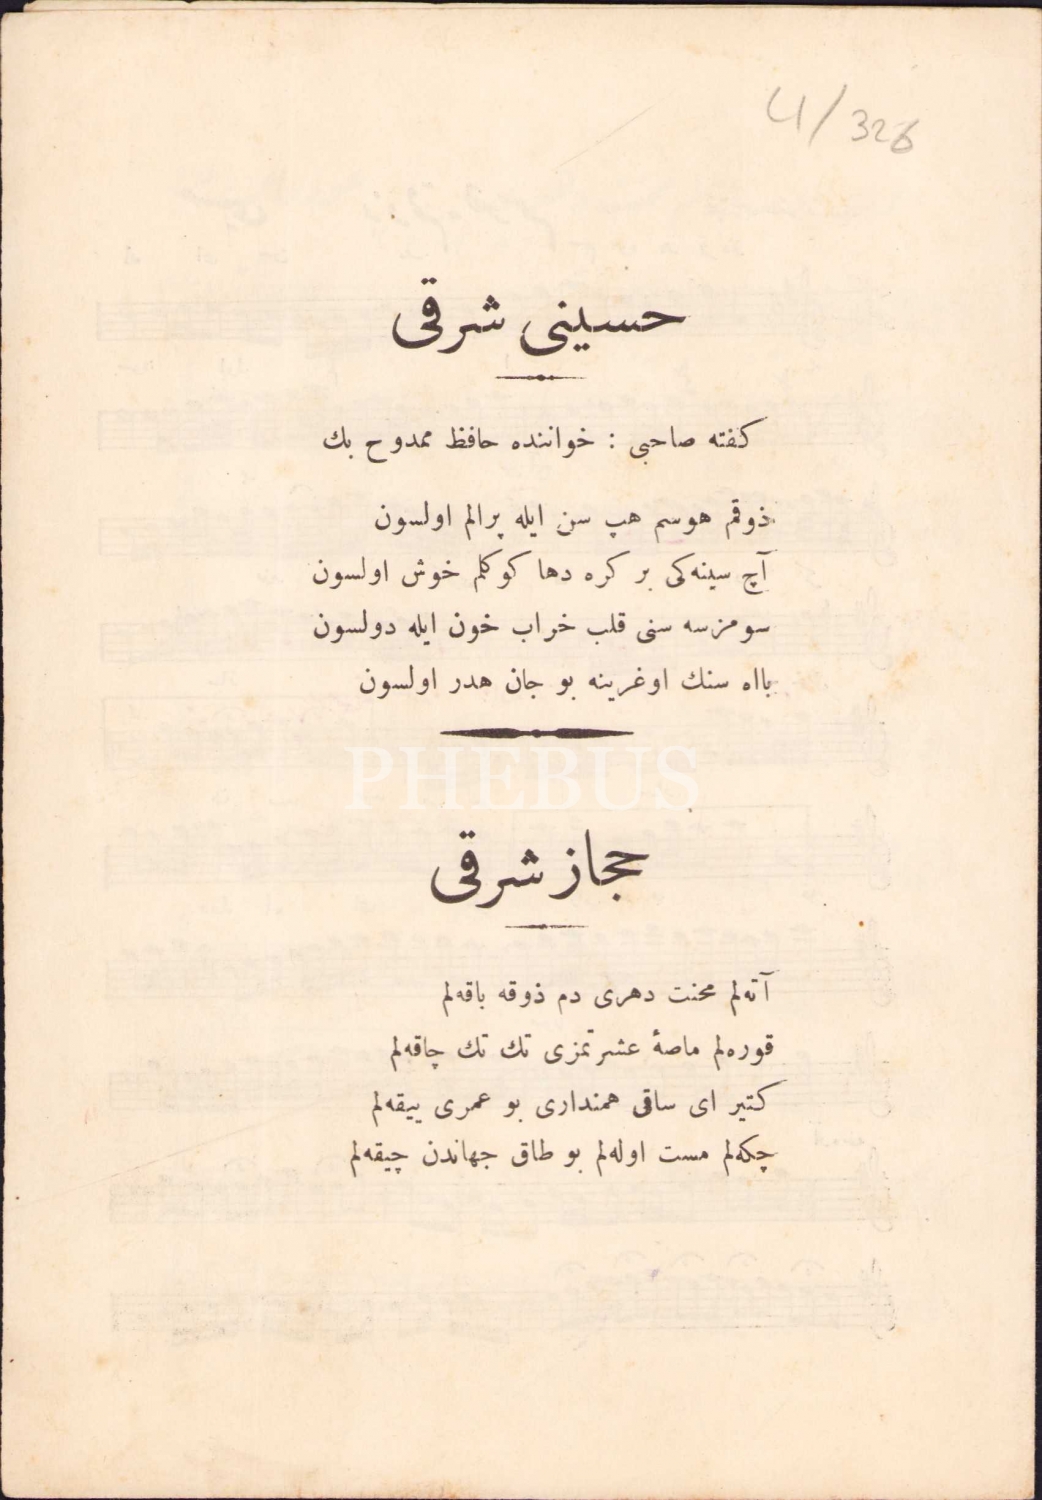 4/326
حسینی شرقی
كفته صاحبی : خواننده حافظ ممدوح بك
ذوقم هوسم هپ سن ایله پرالم اولسون
آچ سینه‌كی بر كره دها كوكلم خوش اولسون
سومزسه سنی قلب خراب خون ایله دولسون
بااه سنك اوغرینه بو جان هدر اولسون
PHEBUS
حجاز شرقی
آته‌لم محنت دهری دم ذوقه باقه‌لم
قوره‌لم ماصهٔ عشرتمزی تك تك چاقه‌لم
كتیر ای ساقی همنداری بو عمری ییقه‌لم
چكه‌لم مست اوله‌لم بو طاق جهاندن چیقه‌لم